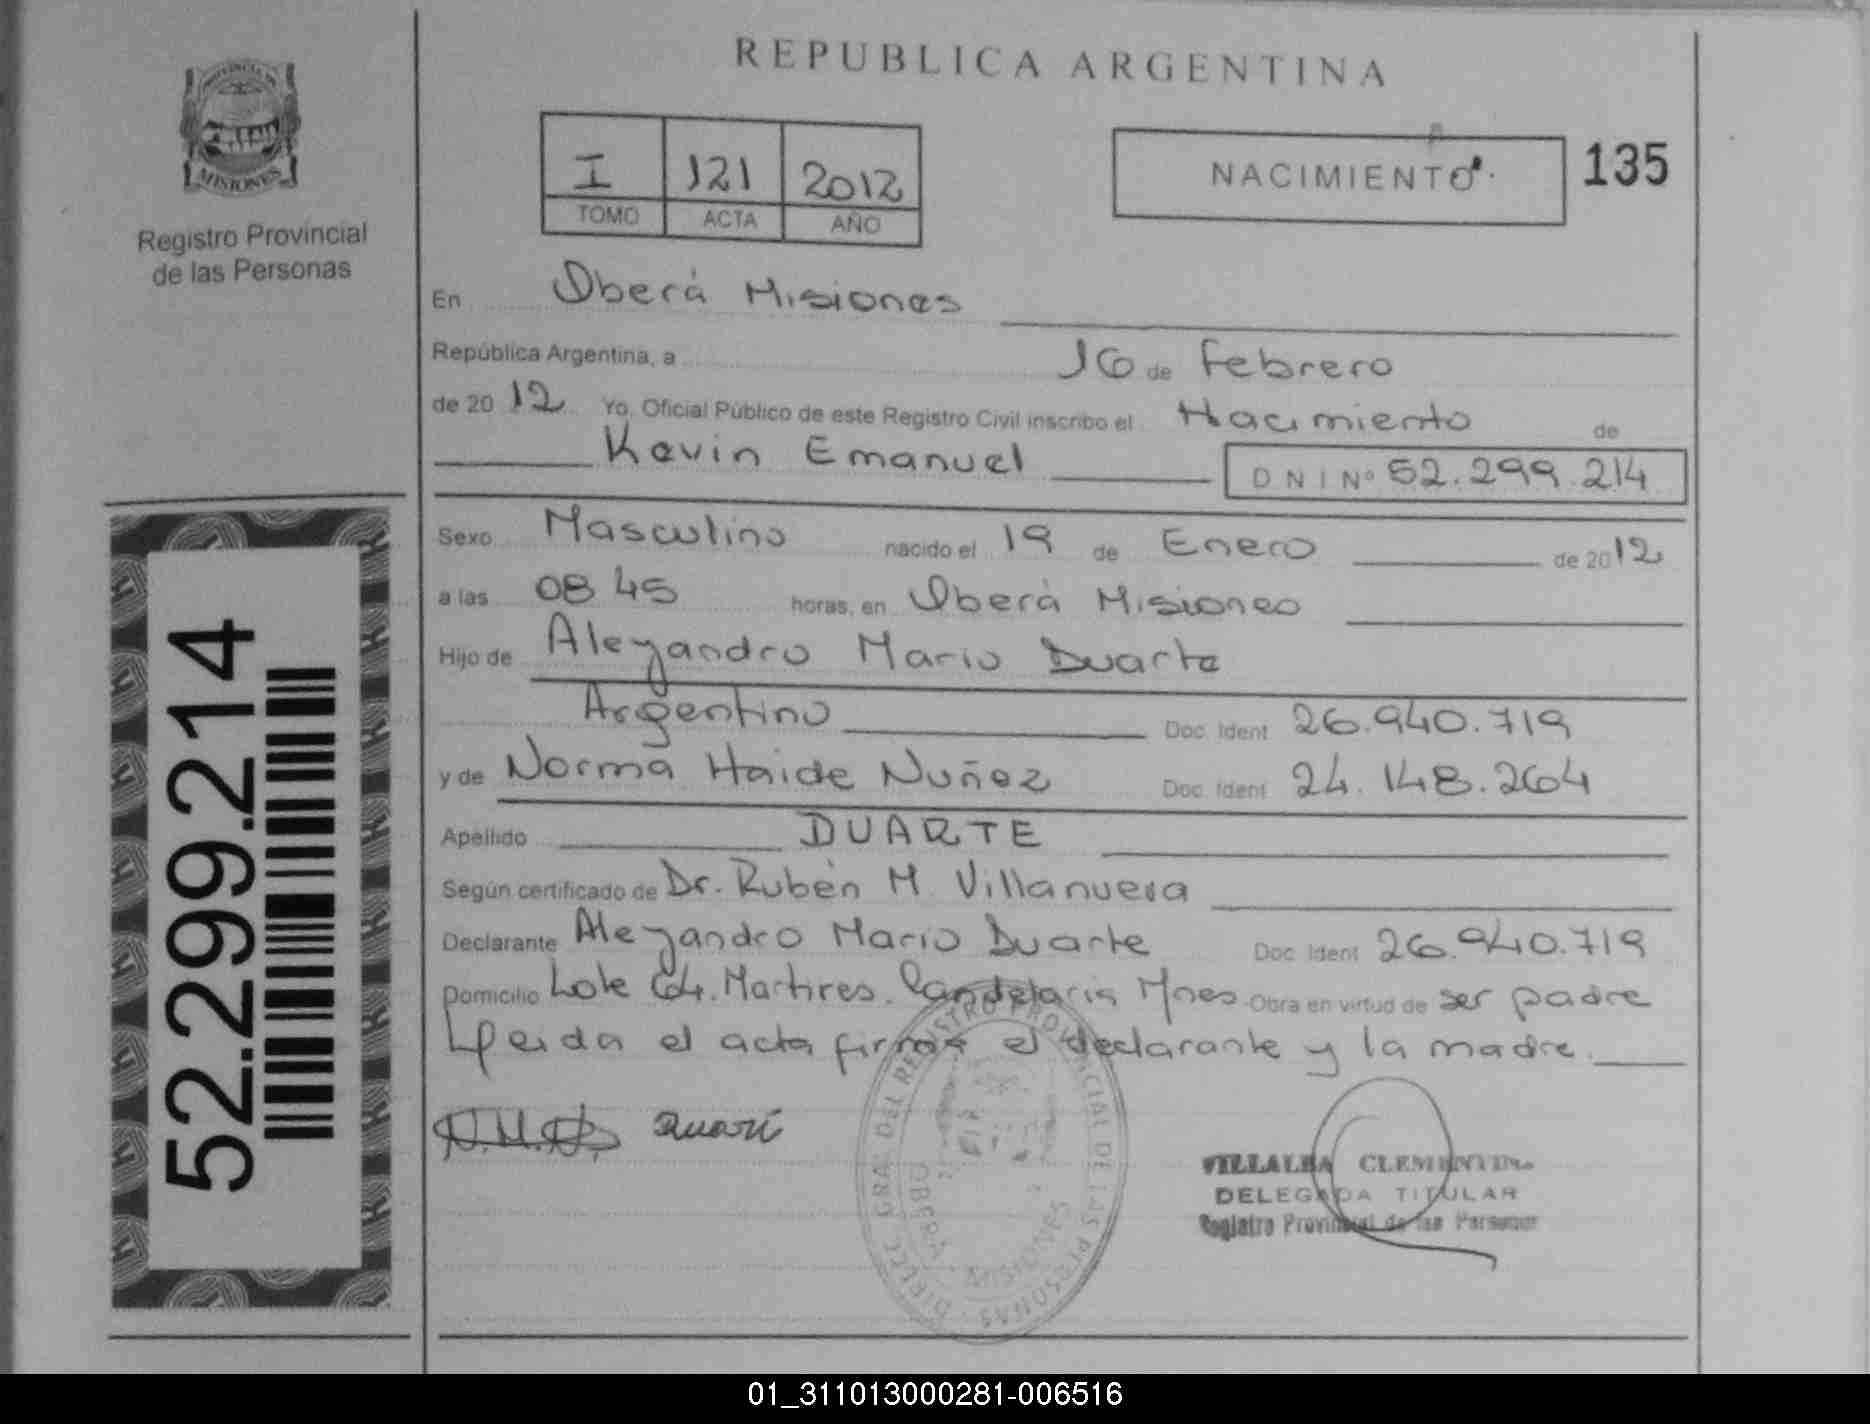 REPUBLICA ARGENTINA
PROVINCIA DE
MISIONES
Registro Provincial
de las Personas
I 121 2012
TOMO ACTA AÑO
NACIMIENTO
135
En Oberá Misiones
República Argentina, a 16 de Febrero
de 20 12 Yo, Oficial Público de este Registro Civil inscribo el Nacimiento de
Kevin Emanuel DNI Nº 52.299.214
Sexo Masculino nacido el 19 de Enero de 2012
a las 08 45 horas, en Oberá Misiones
Hijo de Alejandro Mario Duarte
Argentino Doc. Ident 26.940.719
y de Norma Haide Nuñez Doc. Ident 24.148.264
Apellido DUARTE
Según certificado de Dr. Rubén M. Villanueva
Declarante Alejandro Mario Duarte Doc. Ident 26.940.719
Domicilio Lote 64. Martires. Candelaria Mnes Obra en virtud de ser padre
Leida el acta firman el declarante y la madre.
52.299.214
DIREC. GRAL. DEL REGISTRO PROVINCIAL DE LAS PERSONAS
OBERA MISIONES
VILLALBA CLEMENTINA
DELEGADA TITULAR
Registro Provincial de las Personas
01_311013000281-006516